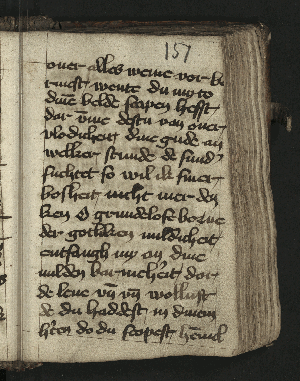 157
ouer alles wene vor be
rmest wente du my to
dine belde scapen hefst
dar vme destu van ouer
vlodicheit diner gude an
welker stunde de sund
suchtet so wil ik siner
bosheit nicht mer den
ken O grundelose borne
der gotliken mildicheit
entfangh my an dine
milden barmherticheit dor
de leue vn wollust
de du haddest in dinem
do du scopest hemel